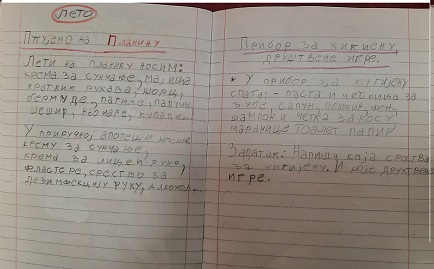 ЛЕТО
ПУЖЕНО НА ПЛАНИНУ
ЛЕТИ НА ПЛАНИНУ НОСИМ:
КРЕМА ЗА СУНЧАЊЕ, МАЈИЦА
КРАТКИХ РУКАВА, ШОРЦ,
БЕРМУДЕ, ПАТИКЕ, ПАПУЧЕ
ШЕШИР, НАОЧАРЕ,
У ПРИРУЧНОЈ АПОТЕЦИ НОСИМО
КРЕМУ ЗА СУНЧАЊЕ,
КРЕМА ЗА ЛИЦЕ И РУКЕ,
ФЛАСТЕРЕ, СРЕСТВО ЗА
ДЕЗИМФЕКЦИЈУ РУКУ, АЛКОХОЛ...
ПРИБОР ЗА ХИКИЈЕНУ,
ДРУШТВЕНЕ ИГРЕ.
У ПРИБОР ЗА ХИГИЈЕНУ
СПАДА: - ПАСТА И ЧЕТКИЦА ЗА
ЗУБЕ, САПУН, ПЕШКИР,
ШАМПОН И ЧЕТКА ЗА КОСУ
МАРАМИЦЕ ТОАЛЕТ ПАПИР
ЗАДАТАК: НАПИШИ КОЈА СРЕСТВА
ЗА ХИКИЈЕНУ. И КОЈЕ ДРУШТВЕНЕ
ИГРЕ.